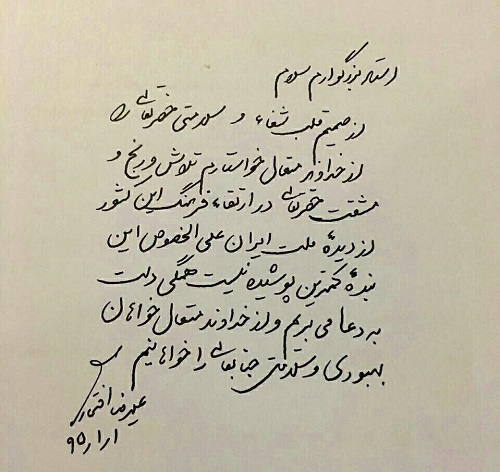 استاد بزرگوارم سلام
از صمیم قلب شفاء و سلامتی حضرتعالی را
از خداوند متعال خواستارم تلاش و رنج و
مشقت حضرتعالی در ارتقاء فرهنگ این کشور
از دیدهٔ ملت ایران علی الخصوص این
بندهٔ کمترین پوشیده نیست همگی دست
به دعا می بریم و از خداوند متعال خواهان
بهبودی و سلامتی جنابعالی را خواهانیم
علیرضا افتخاری
۹۵